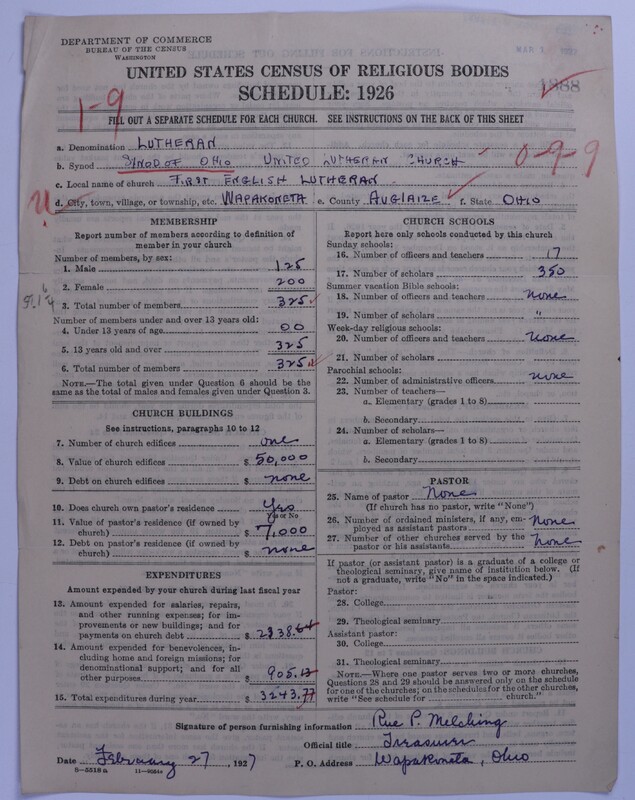 DEPARTMENT OF COMMERCE
BUREAU OF THE CENSUS
WASHINGTON
UNITED STATES CENSUS OF RELIGIOUS BODIES
SCHEDULE: 1926
1888
1-9
FILL OUT A SEPARATE SCHEDULE FOR EACH CHURCH. SEE INSTRUCTIONS ON THE BACK OF THIS SHEET
a. Denomination LUTHERAN
b. Synod SYNOD OF OHIO UNITED LUTHERAN CHURCH 0-9-9
c. Local name of church FIRST ENGLISH LUTHERAN
d. City, town, village, or township, etc. WAPAKONETA e. County AUGLAIZE f. State OHIO
MEMBERSHIP
Report number of members according to definition of
member in your church
Number of members, by sex:
1. Male 125
2. Female 200
3. Total number of members 325
Number of members under and over 13 years old:
4. Under 13 years of age 00
5. 13 years old and over 325
6. Total number of members 325
NOTE.—The total given under Question 6 should be
the same as the total of males and females given under Question 3.
CHURCH BUILDINGS
See instructions, paragraphs 10 to 12
7. Number of church edifices one
8. Value of church edifices $ 50,000
9. Debt on church edifices $ none
10. Does church own pastor's residence Yes
Yes or No
11. Value of pastor's residence (if owned by
church) $ 7,000
12. Debt on pastor's residence (if owned by
church) $ none
EXPENDITURES
Amount expended by your church during last fiscal year
13. Amount expended for salaries, repairs,
and other running expenses; for im-
provements or new buildings; and for
payments on church debt $ 2338.64
14. Amount expended for benevolences,
including home and foreign missions; for
denominational support; and for all
other purposes $ 905.13
15. Total expenditures during year $ 3243.77
CHURCH SCHOOLS
Report here only schools conducted by this church
Sunday schools:
16. Number of officers and teachers 17
17. Number of scholars 350
Summer vacation Bible schools:
18. Number of officers and teachers None
19. Number of scholars "
Week-day religious schools:
20. Number of officers and teachers None
21. Number of scholars
Parochial schools:
22. Number of administrative officers none
23. Number of teachers—
a. Elementary (grades 1 to 8)
b. Secondary
24. Number of scholars—
a. Elementary (grades 1 to 8)
b. Secondary
PASTOR
25. Name of pastor None
(If church has no pastor, write "None")
26. Number of ordained ministers, if any, em-
ployed as assistant pastors None
27. Number of other churches served by the
pastor or his assistante None
If pastor (or assistant pastor) is a graduate of a college or
theological seminary, give name of institution below. (If
not a graduate, write "No" in the space indicated.)
Pastor:
28. College
29. Theological seminary
Assistant pastor:
30. College
31. Theological seminary
NOTE.—Where one pastor serves two or more churches,
Questions 28 and 29 should be answered only on the schedule
for one of the churches; on the schedules for the other churches,
write "See schedule for church."
Signature of person furnishing information Rue P. Melching
Official title Treasurer
Date February 27, 1927 P. O. Address Wapakoneta, Ohio
8-5518a 11-9084